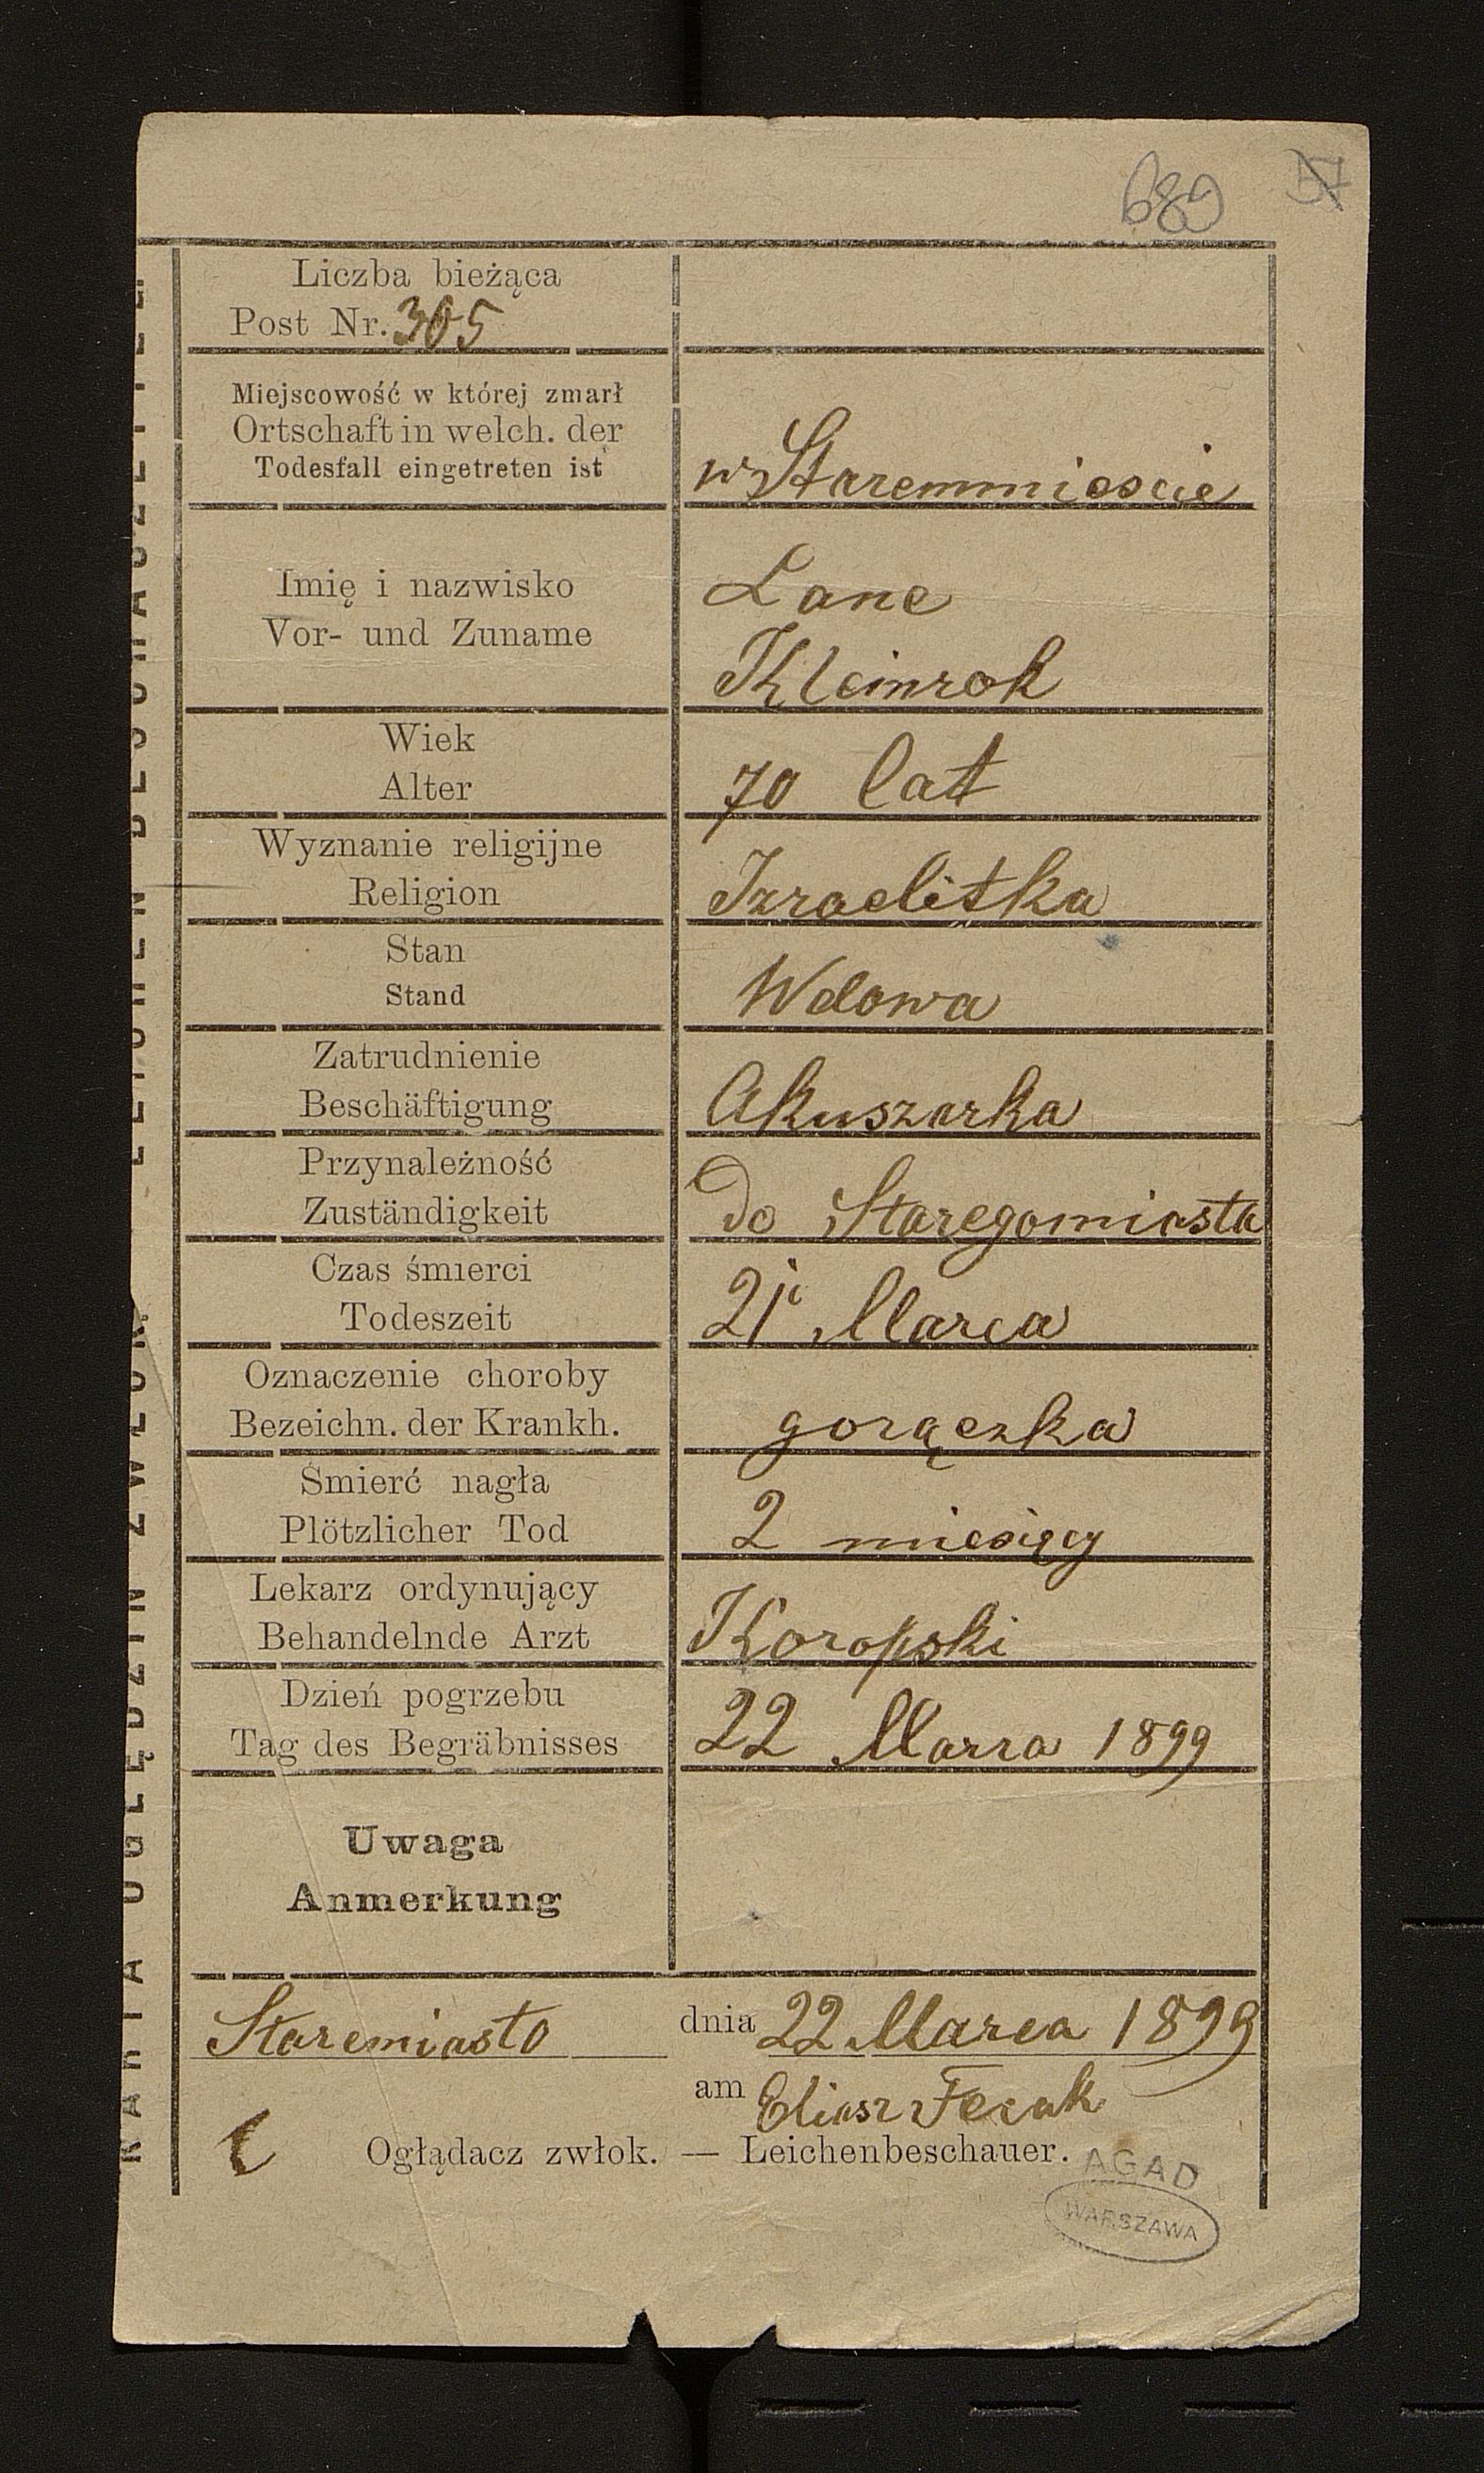 689 57
Liczba bieżąca
Post Nr. 305
Miejscowość w której zmarł
Ortschaft in welch. der
Todesfall eingetreten ist
w Staremmieście
Imię i nazwisko
Vor- und Zuname
Lane
Kleinrok
Wiek
Alter
70 lat
Wyznanie religijne
Religion
Izraelitka
Stan
Stand
Wdowa
Zatrudnienie
Beschäftigung
Akuszarka
Przynależność
Zuständigkeit
do Staregomiasta
Czas śmierci
Todeszeit
21 Marca
Oznaczenie choroby
Bezeichn. der Krankh.
gorączka
Śmierć nagła
Plötzlicher Tod
2 miesięcy
Lekarz ordynujący
Behandelnde Arzt
Koropski
Dzień pogrzebu
Tag des Begräbnisses
22 Marca 1899
Uwaga
Anmerkung
Staremiasto dnia 22 Marca 1899
am Eliasz Fecak
Oglądacz zwłok. — Leichenbeschauer.
AGAD
WARSZAWA
KARTA OGLĘDZIN ZWŁOK